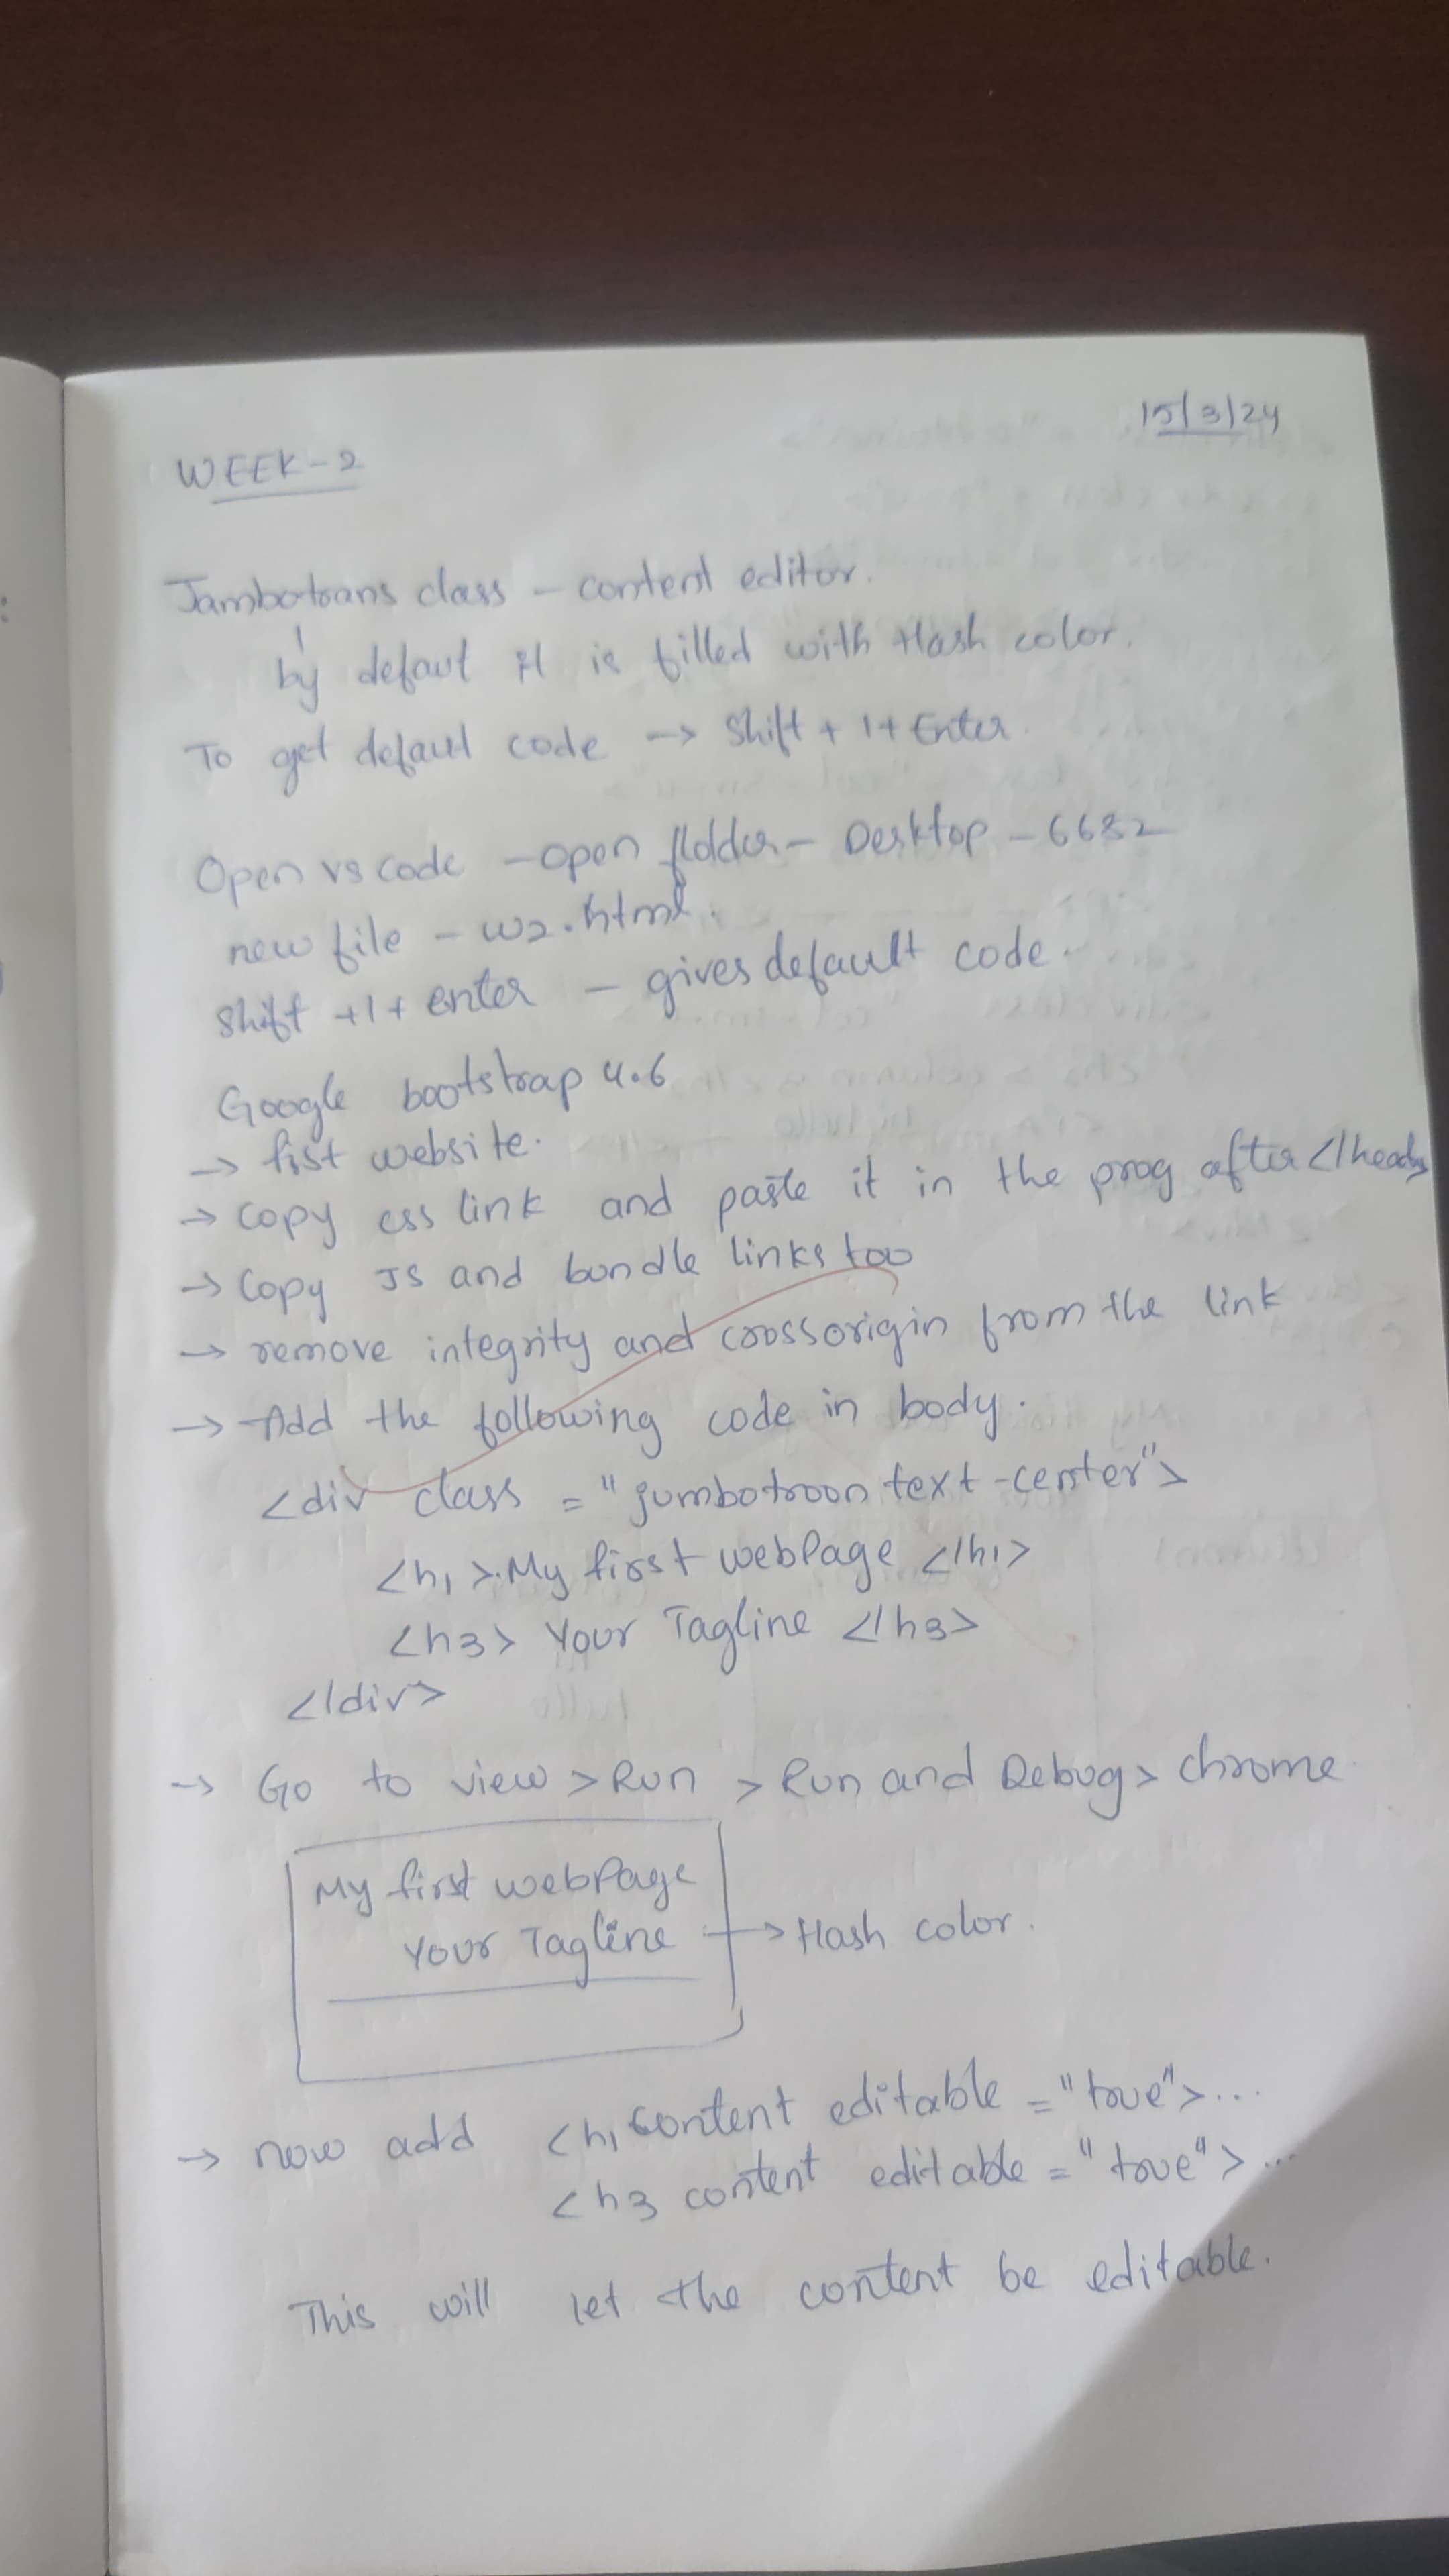 15/3/24
WEEK-2
Jambotrans class - content editor.
by defaut it is filled with Hash color.
To get defaul code → Shift + 1 + Enter.
Open vs code - open flolder - Desktop - 6682
new file - w2.html.
Shift +1+ enter - gives default code.
Google bootstrap 4.6
→ fist website.
→ copy css link and paste it in the prog after </head>
→ Copy JS and bundle links too
→ remove integrity and crossorigin from the link
→ Add the following code in body.
<div class = "jumbotroon text-center">
<h1>.My first webPage </h1>
<h3> Your Tagline </h3>
</div>
→ Go to view > Run > Run and Debug > chrome.
My first webPage
Your Tagline → Hash color.
→ now add <h1 content editable = "true">...
<h3 content editable = "true">...
This will let the content be editable.